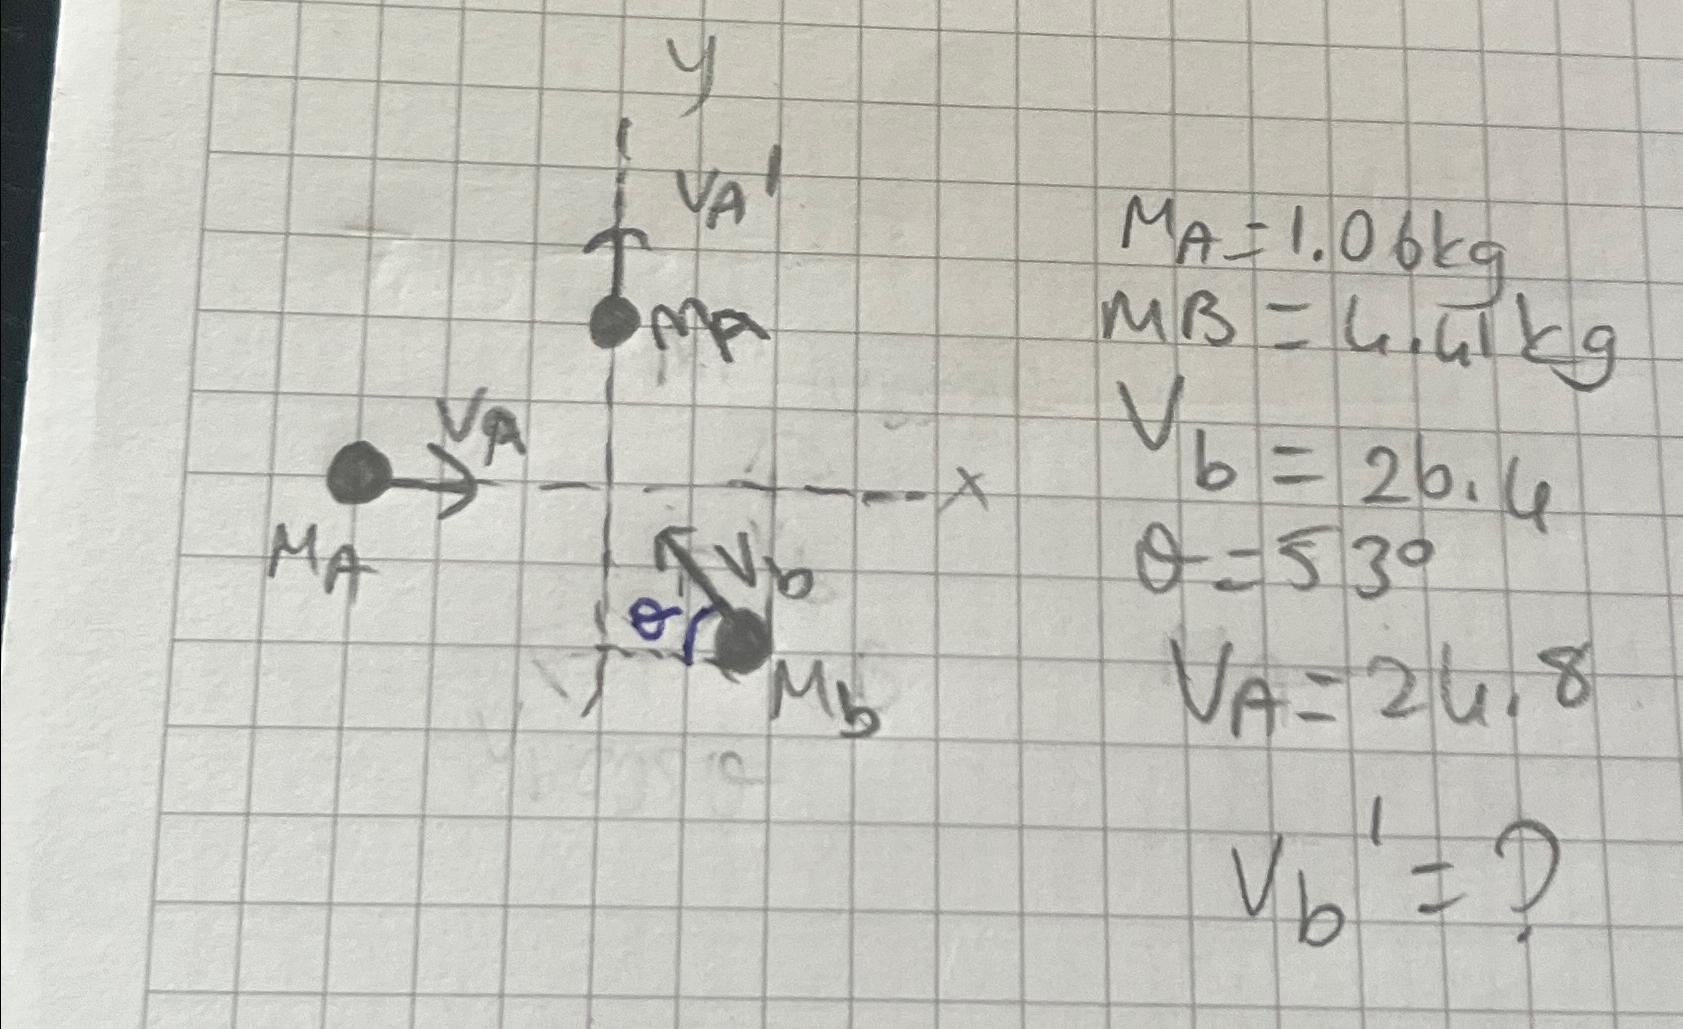 y
VA'
MA
VA
x
MA
Vb
θ
Mb
MA=1.06kg
MB=4.41kg
Vb=26.4
θ=53°
VA=24.8
Vb'=?